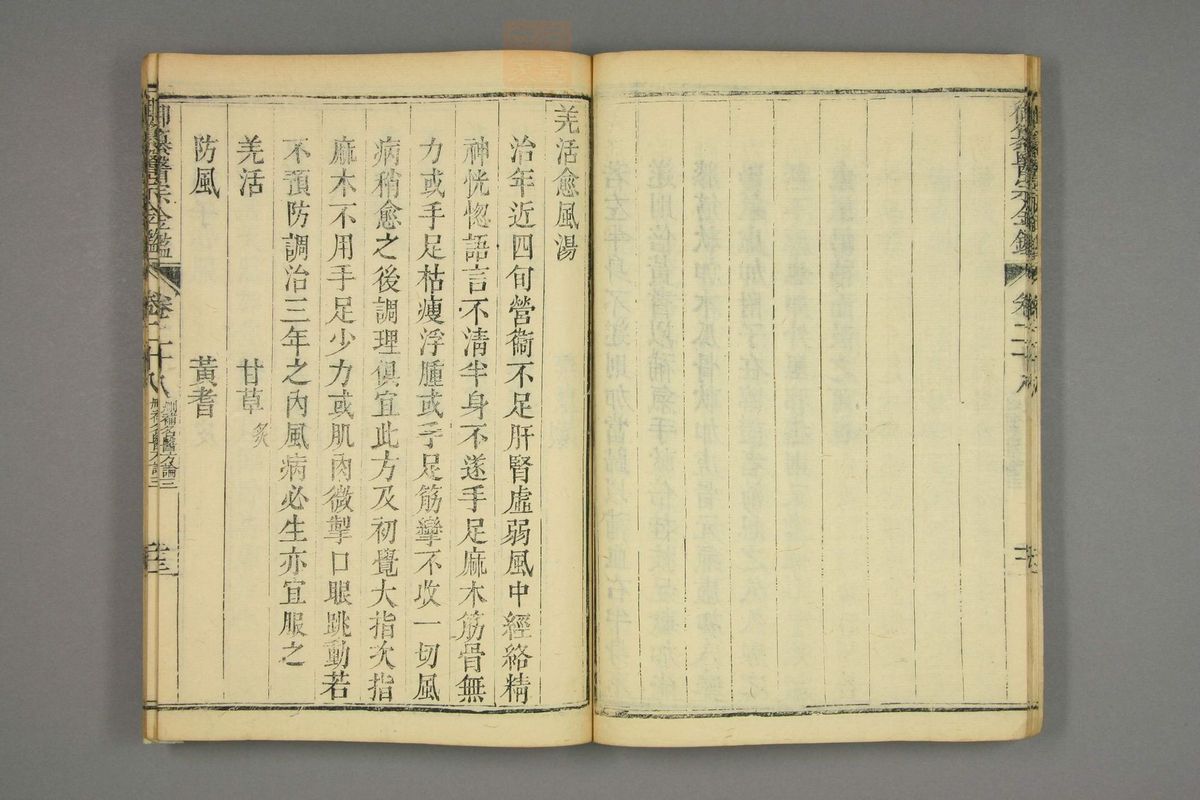 御纂醫宗金鑑
卷二十八
羌活愈風湯
治年近四旬營衞不足肝腎虛弱風中經絡精
神恍惚語言不清半身不遂手足麻木筋骨無
力或手足枯瘦浮腫或手足筋攣不收一切風
病稍愈之後調理俱宜此方及初覺大指次指
麻木不用手足少力或肌肉微掣口眼跳動若
不預防調治三年之內風病必生亦宜服之
羌活 甘草炙
防風 黃耆
御纂醫宗金鑑 卷二十八 刪補名醫方論三